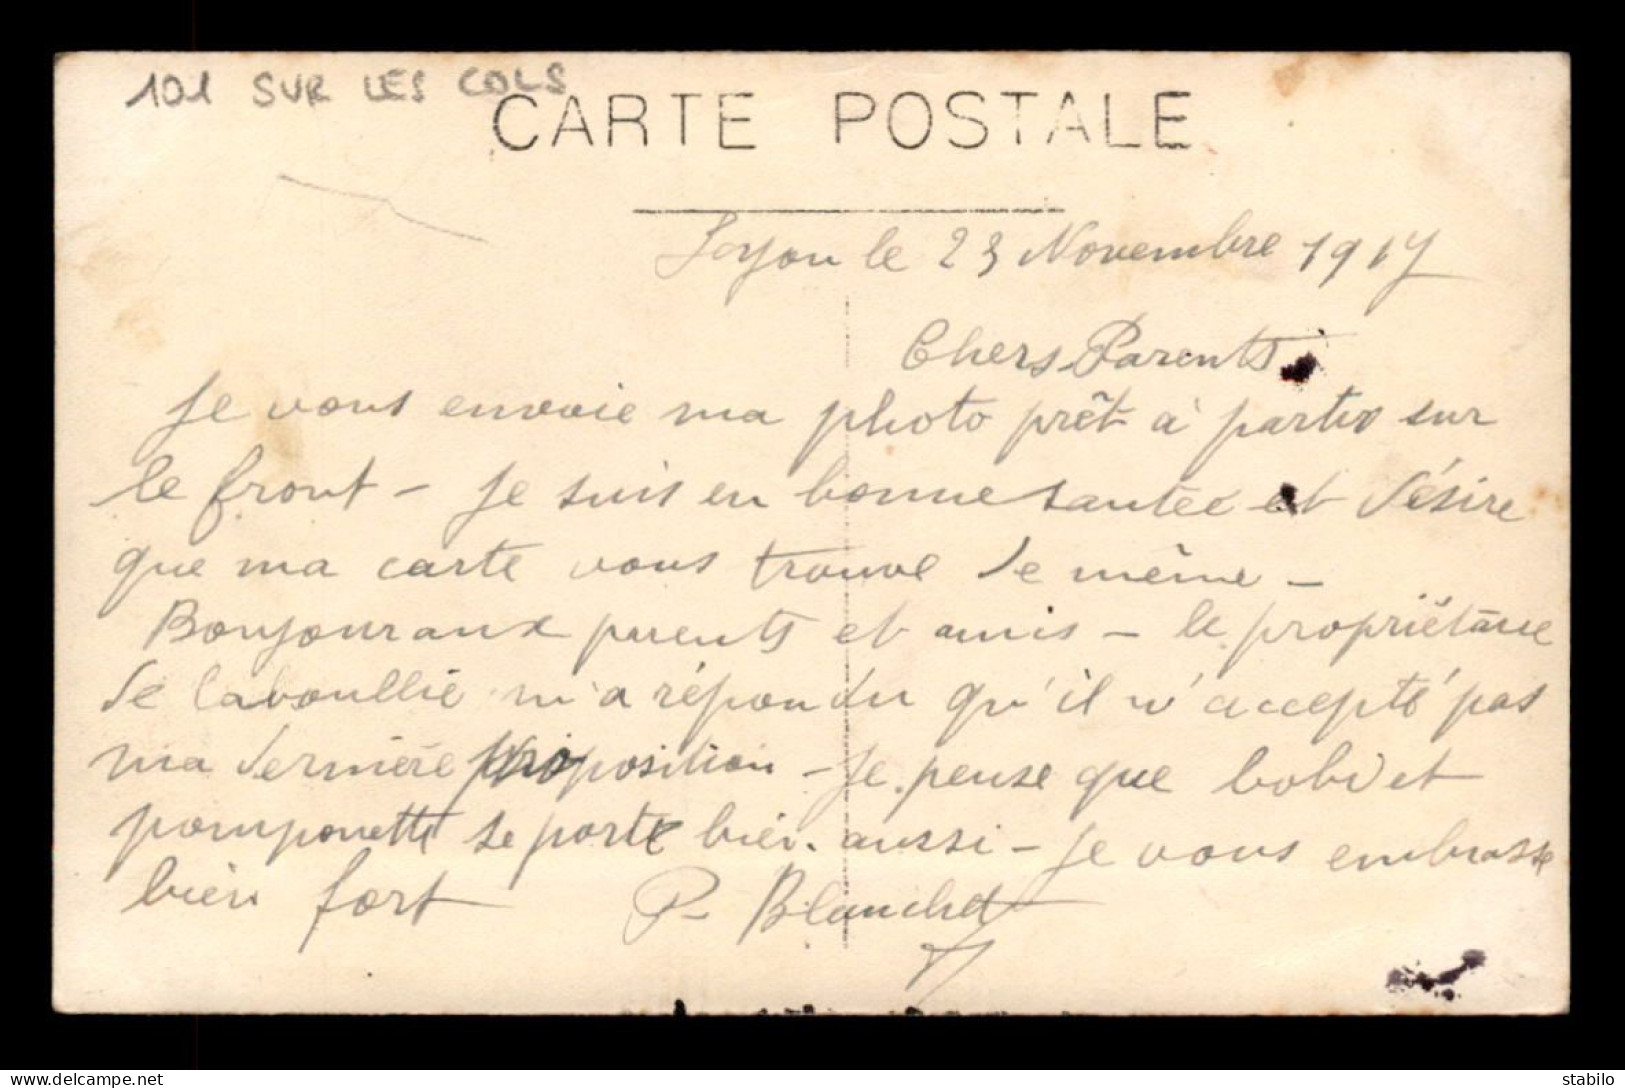 101 SUR LES COLS
CARTE POSTALE
le 23 Novembre 1917
Chers Parents
Je vous envoie ma photo prêt à partir sur
le front - Je suis en bonne santée et désire
que ma carte vous trouve de même -
Bonjour aux parents et amis - le propriétaire
de m'a répondu qu'il n'accepté pas
ma dernière proposition - Je pense que bobi et
pomponette se porte bien aussi - Je vous embrasse
bien fort P. Blanchet
stabilo